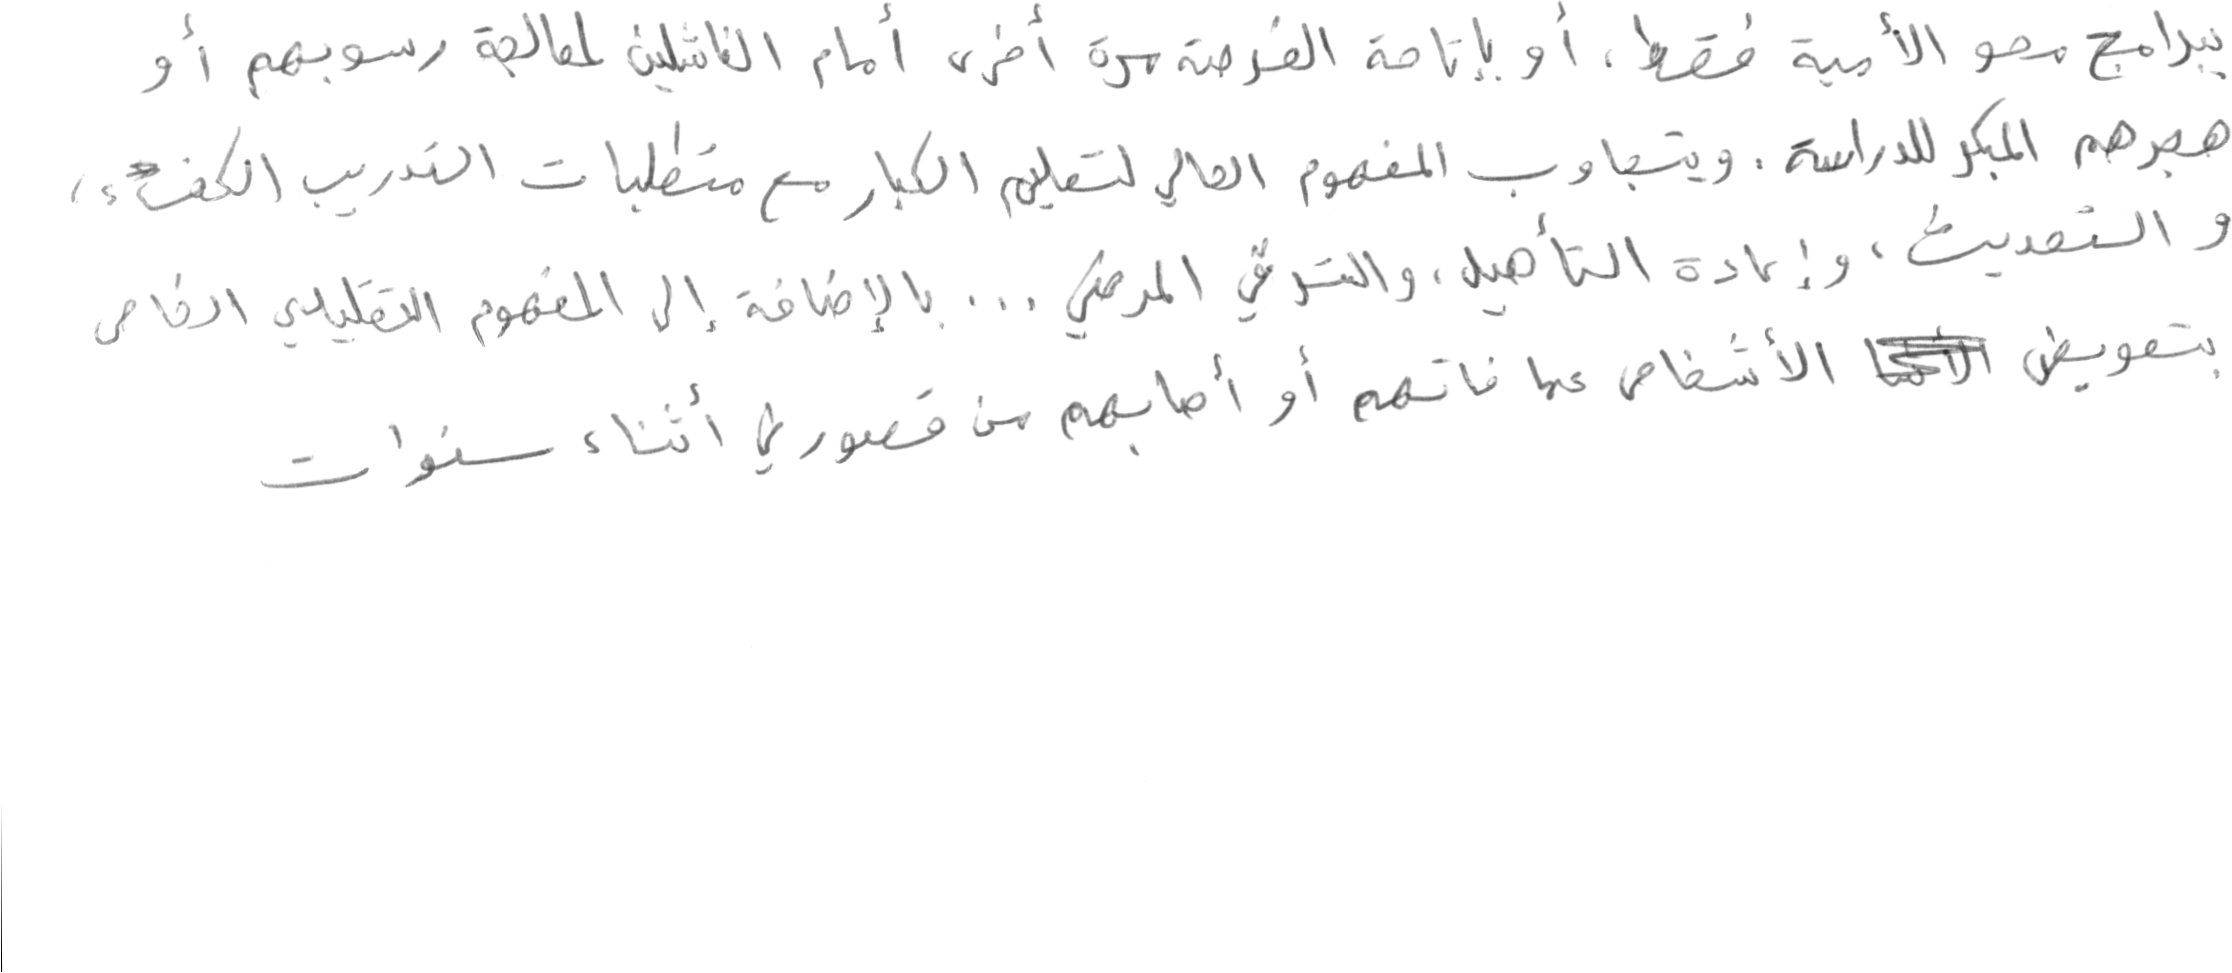 ببرامج محو الأمية فقط، أو بإتاحة الفرصة مرة أخرى أمام الفاشلين لمعالجة رسوبهم أو
هجرهم المبكر للدراسة. ويتجاوب المفهوم الحالي لتعليم الكبار مع متطلبات التدريب الكفء،
والتحديث، وإعادة التأهيل، والترقي المرضي ... بالإضافة إلى المفهوم التقليدي الخاص
بتعويض الأشخاص عما فاتهم أو أصابهم من قصور في أثناء سنوات